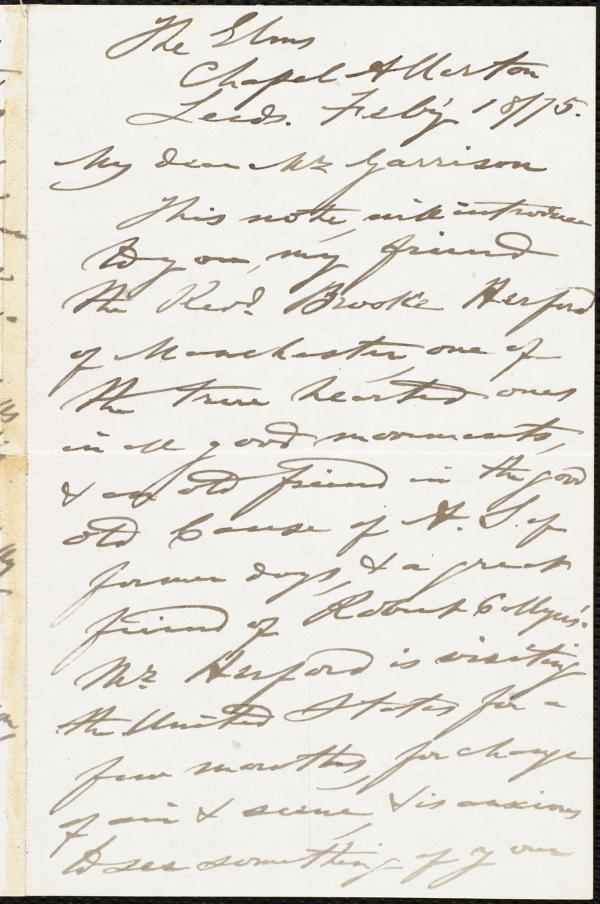 The Elms
Chapel Allerton
Leeds. Feby 18/75.
My dear Mr Garrison
This note, will introduce
to you, my friend
the Revd. Brooke Herford
of Manchester, one of
the true hearted ones
in all good movements,
& an old friend in the good
old Cause of A. S. of
former days, & a great
friend of Robert Collyer's.
Mr Herford is visiting
the United States for a
few months, for change
of air & scene, & is anxious
to see something of your